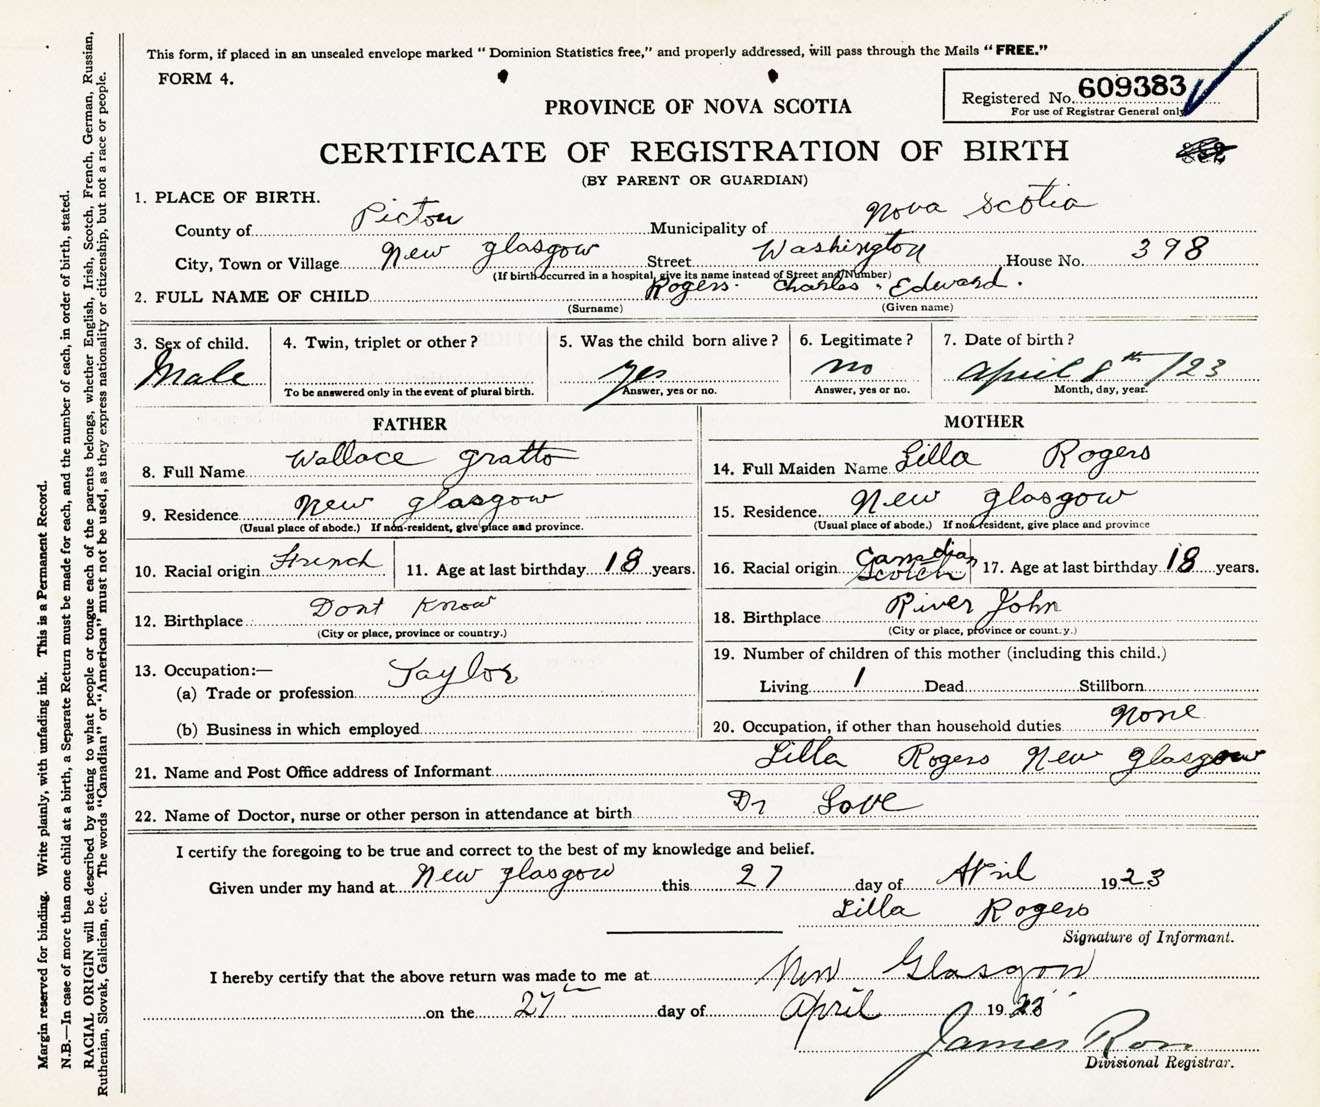 This form, if placed in an unsealed envelope marked “ Dominion Statistics free,” and properly addressed, will pass through the Mails “ FREE.”
FORM 4.
Registered No. 609383
For use of Registrar General only
PROVINCE OF NOVA SCOTIA
CERTIFICATE OF REGISTRATION OF BIRTH
(BY PARENT OR GUARDIAN)
1. PLACE OF BIRTH.
County of Pictou Municipality of Nova Scotia
City, Town or Village New glasgow Street Washington House No. 398
(If birth occurred in a hospital, give its name instead of Street and Number)
2. FULL NAME OF CHILD Rogers. Charles. Edward.
(Surname) (Given name)
3. Sex of child. 4. Twin, triplet or other ? 5. Was the child born alive ? 6. Legitimate ? 7. Date of birth ?
Male yes no April 8th /23
To be answered only in the event of plural birth. Answer, yes or no. Answer, yes or no. Month, day, year.
FATHER
8. Full Name Wallace gratto
9. Residence New glasgow
(Usual place of abode.) If non-resident, give place and province.
10. Racial origin French 11. Age at last birthday 18 years.
12. Birthplace Dont Know
(City or place, province or country.)
13. Occupation:—
(a) Trade or profession Taylor
(b) Business in which employed
MOTHER
14. Full Maiden Name Lilla Rogers
15. Residence New glasgow
(Usual place of abode.) If non-resident, give place and province
16. Racial origin Canadian Scotch 17. Age at last birthday 18 years.
18. Birthplace River John
(City or place, province or country.)
19. Number of children of this mother (including this child.)
Living 1 Dead Stillborn
20. Occupation, if other than household duties None
21. Name and Post Office address of Informant Lilla Rogers New glasgow
22. Name of Doctor, nurse or other person in attendance at birth Dr Love
I certify the foregoing to be true and correct to the best of my knowledge and belief.
Given under my hand at New glasgow this 27 day of April 1923
Lilla Rogers
Signature of Informant.
I hereby certify that the above return was made to me at New Glasgow
on the 27th day of April 1923
James
Divisional Registrar.
Margin reserved for binding. Write plainly, with unfading ink. This is a Permanent Record.
N.B.—In case of more than one child at a birth, a Separate Return must be made for each, and the number of each, in order of birth, stated.
RACIAL ORIGIN will be described by stating to what people or tongue each of the parents belongs, whether English, Irish, Scotch, French, German, Russian,
Ruthenian, Slovak, Galician, etc. The words “Canadian” or “American” must not be used, as they express nationality or citizenship, but not a race or people.